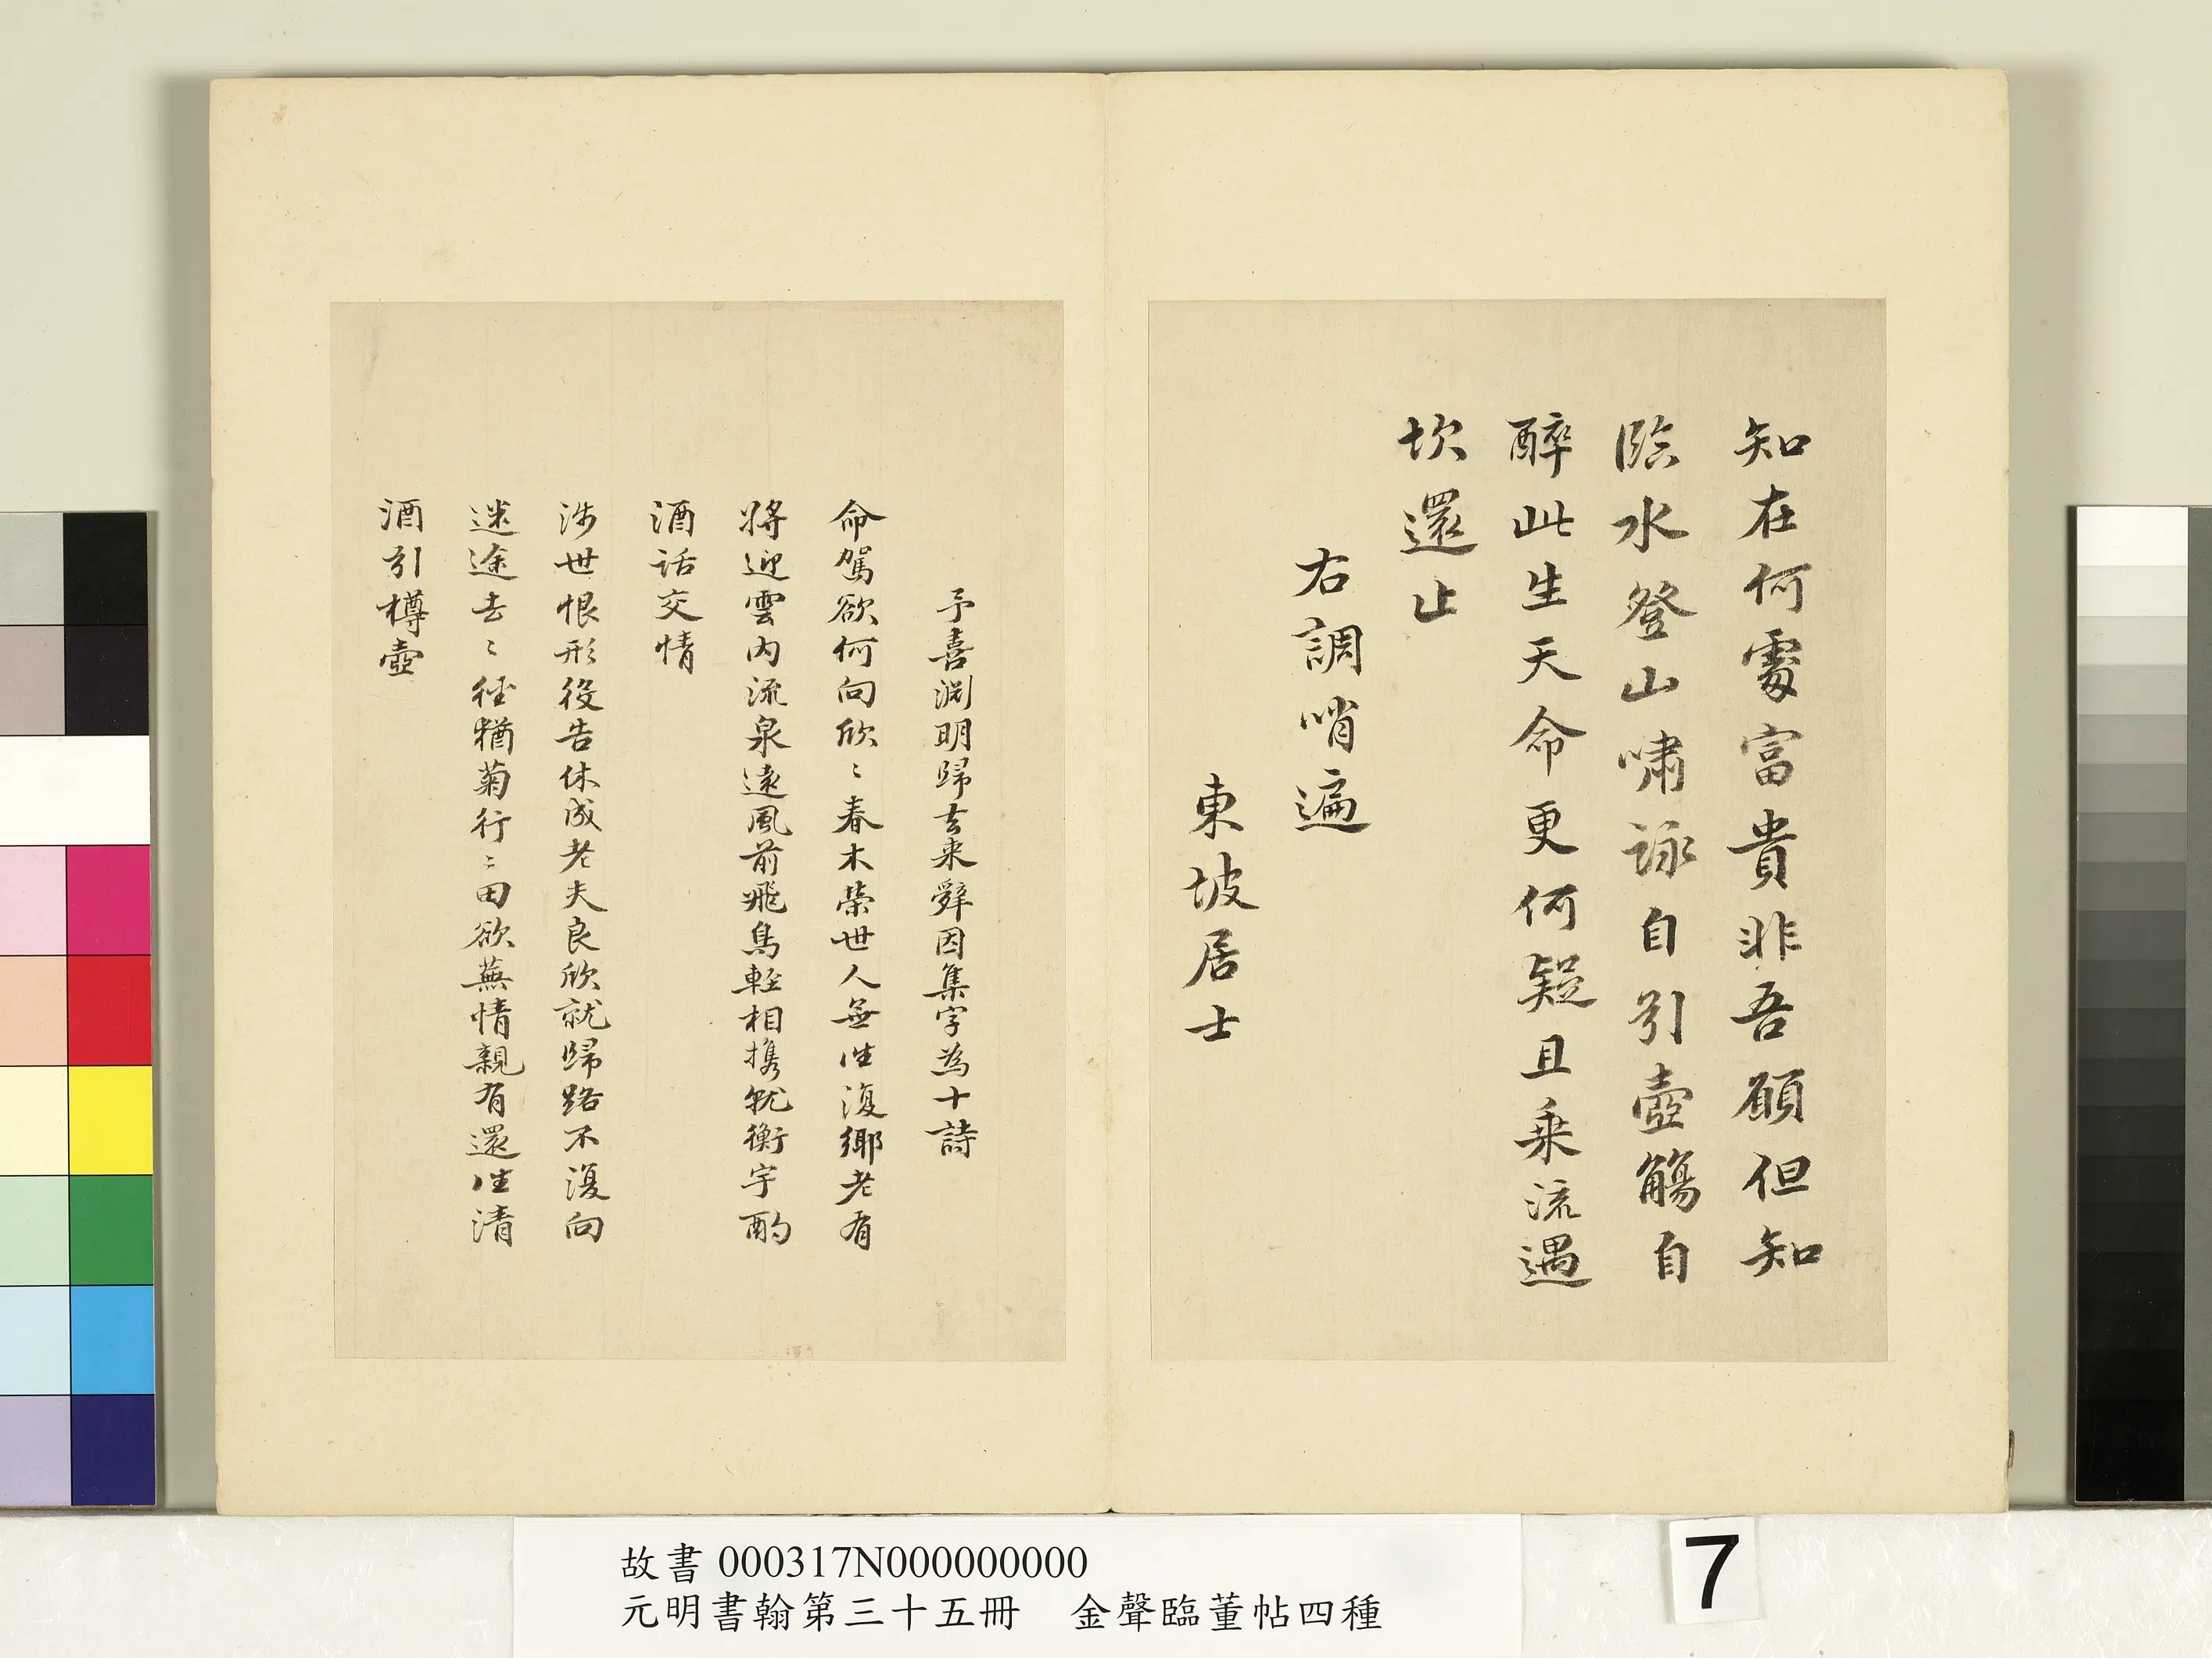 知在何處富貴非吾願但知
臨水登山嘯詠自引壺觴自
醉此生天命更何疑且乗流遇
坎還止
右調哨遍
東坡居士
予喜淵明歸去来辭因集字為十詩
命駕欲何向欣〻春木榮世人無往復鄉老有
將迎雲内流泉遠風前飛鳥輕相携就衡宇酌
酒話交情
涉世恨形役告休成老夫良欣就歸路不復向
迷途去〻徑猶菊行〻田欲蕪情親有還往清
酒引樽壺
故書 000317N000000000
元明書翰第三十五冊 金聲臨董帖四種
7